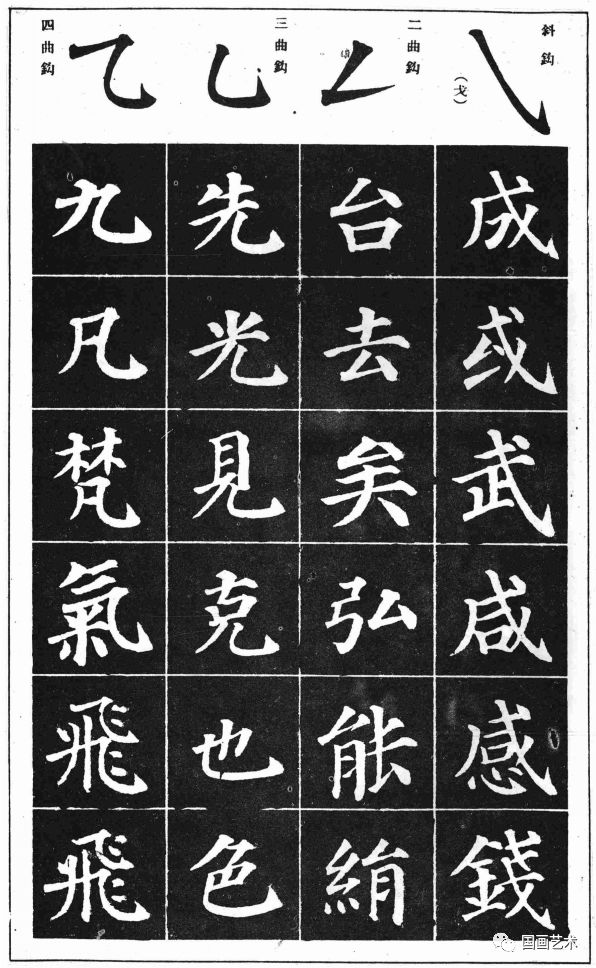 斜鈎
（戈）
成或武咸感錢
二曲鈎
台去矣弘能絹
三曲鈎
先光見克也色
四曲鈎
九凡梵氣飛飛
国画艺术